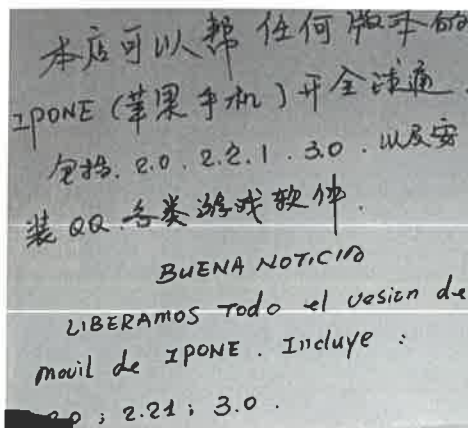 本店可以帮任何版本的
IPONE (苹果手机) 开全球通.
包括. 2.0. 2.2.1. 3.0. 以及安
装QQ.各类游戏软件.
BUENA NOTICIA
LIBERAMOS Todo el vesion de
movil de IPONE. Incluye :
2.0 ; 2.21 ; 3.0.